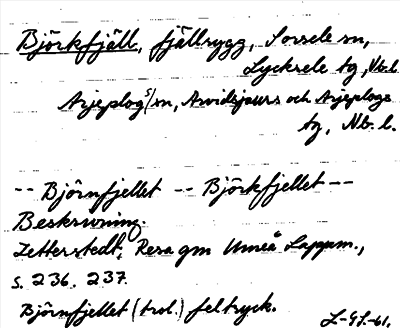 Björkfjäll, fjällrygg, Sorsele sn,
Lycksele tg, Vb. l.
Arjeplogs sn, Arvidsjaurs och Arjeplogs
tg, Nb. l.
-- Björnfjellet -- Björkfjellet --
Beskrivning.
Zetterstedt, Resa gm Umeå Lappm.,
s. 236, 237.
Björnfjellet (trol.) feltryck.